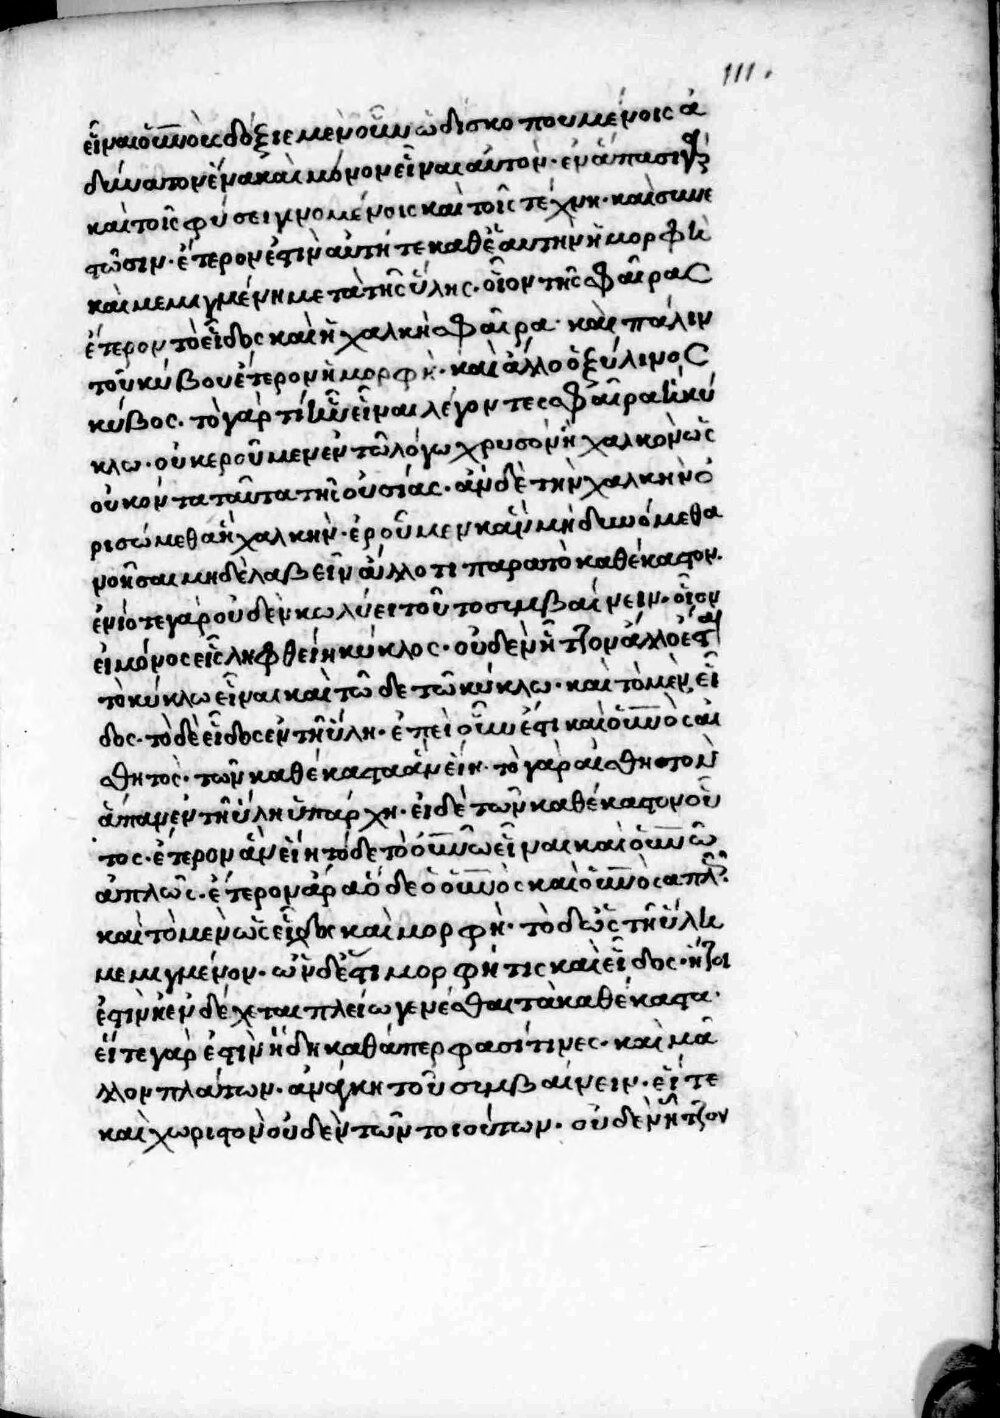 111.
εἶναι οὐνοὺς δόξιε μὲν οὖν ὧδι σκοπουμένοις ἀ
δύνατον ἕνα καὶ μόνον εἶναι αὐτὸν· ἐν ἅπασι γὰρ
καὶ τοῖς φύσει γινομένοις καὶ τοῖς τέχνη· καὶ συνε
στῶσιν· ἕτερον ἐστὶν αὐτή τε καθ' ἑαυτὴν ἡ μορφὴ
καὶ μεμιγμένη μετὰ τῆς ὕλης· οἷον τῆς σφαίρας
ἕτερον τὸ εἶδος καὶ ἡ χαλκὴ σφαῖρα· καὶ πάλιν
τοῦ κύβου ἕτερον ἡ μορφὴ· καὶ ἄλλο ὁ ξύλινος
κύβος· τὸ γὰρ τί ἦν εἶναι λέγοντες σφαῖρα ἢ κύ
κλω· οὐκ ἐροῦμεν ἐν τῶ λόγω χρυσὸν ἢ χαλκὸν ὡς
οὐκ ὄντα ταῦτα τῆς οὐσίας· ἀν δὲ τὴν χαλκὴν ὁ
ρισώμεθα ἢ χαλκὴν· ἐροῦμεν κἂν μὴ δυνόμεθα
νοῆσαι μηδὲ λαβεῖν ἄλλο τι παρα τὸ καθέκαστον·
ἐνίοτε γὰρ οὐδὲν κωλύει τοῦτο συμβαίνειν· οἷον
εἰ μόνος εἷς ληφθείη κύκλος· οὐδὲν ἧττον ἄλλο ἔσται
τὸ κύκλω εἶναι καὶ τῶδε τῶ κύκλω· καὶ τὸ μὲν εἶ
δος· τὸ δὲ εἶδος ἐν τῆ ὕλη· ἐπεὶ οὖν ἐστι καὶ ὁ οὐνὸς αἰ
σθητὸς· τῶν καθέκαστα ἂν εἴη· τὸ γὰρ αἰσθητὸν
ἅπαν ἐν τῆ ὕλη ὑπάρχη· εἰ δὲ τῶν καθέκαστον οὗ
τος· ἕτερον ἂν εἴη τόδε τὸ οὐνῶ εἶναι καὶ οὐνῶ
ἁπλῶς· ἕτερον ἄρα ὅδε ὁ οὐνὸς καὶ οὐνὸς ἁπλῶς·
καὶ τὸ μὲν ὡς εἶδος καὶ μορφὴ· τὸ δ' ὡς τῆ ὕλη
μεμιγμένον· ὧν δ' ἐστι μορφή τις καὶ εἶδος· ἤτοι
ἐστὶν ἢ ἐνδέχεται πλείω γενέσθαι τὰ καθέκαστα·
εἴτε γὰρ ἐστὶν ἤδη καθάπερ φασί τινες· καὶ μᾶ
λλον πλάτων· ἀνάγκη τοῦ συμβαίνειν· εἴτε
καὶ χωριστὸν οὐδὲν τῶν τοιούτων· οὐδὲν ἧττον